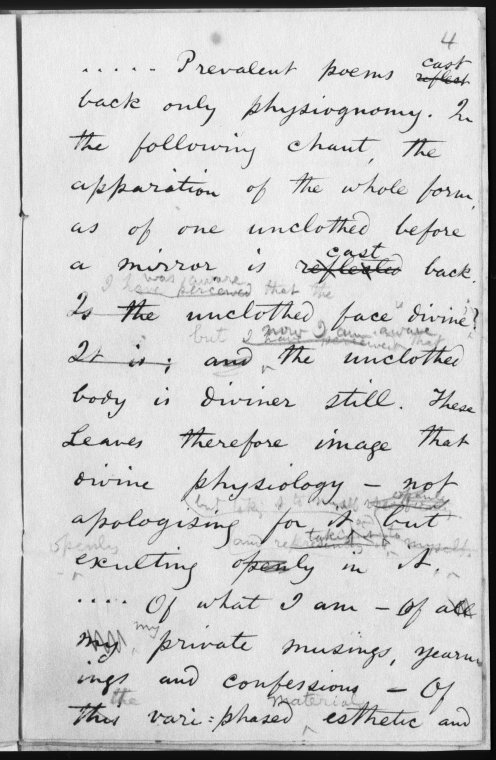 4
..... Prevalent poems cast
reflect
back only physiognomy. In
the following chant, the
apparation of the whole form,
as of one unclothed before
cast
a mirror is reflected back.
was aware
I have perceived that the
Is the unclothed face divine?
now I am aware
but I have perceived that
It is; and the unclothed
body is diviner still. These
Leaves therefore image that
divine physiology — not
but take it to myself
apologising for it, but
and taking it to myself.
openly
exulting openly in it.
.... Of what I am — Of all
my
my private musings, yearn
ings and confessions — Of
the material,
this vari=phased esthetic and